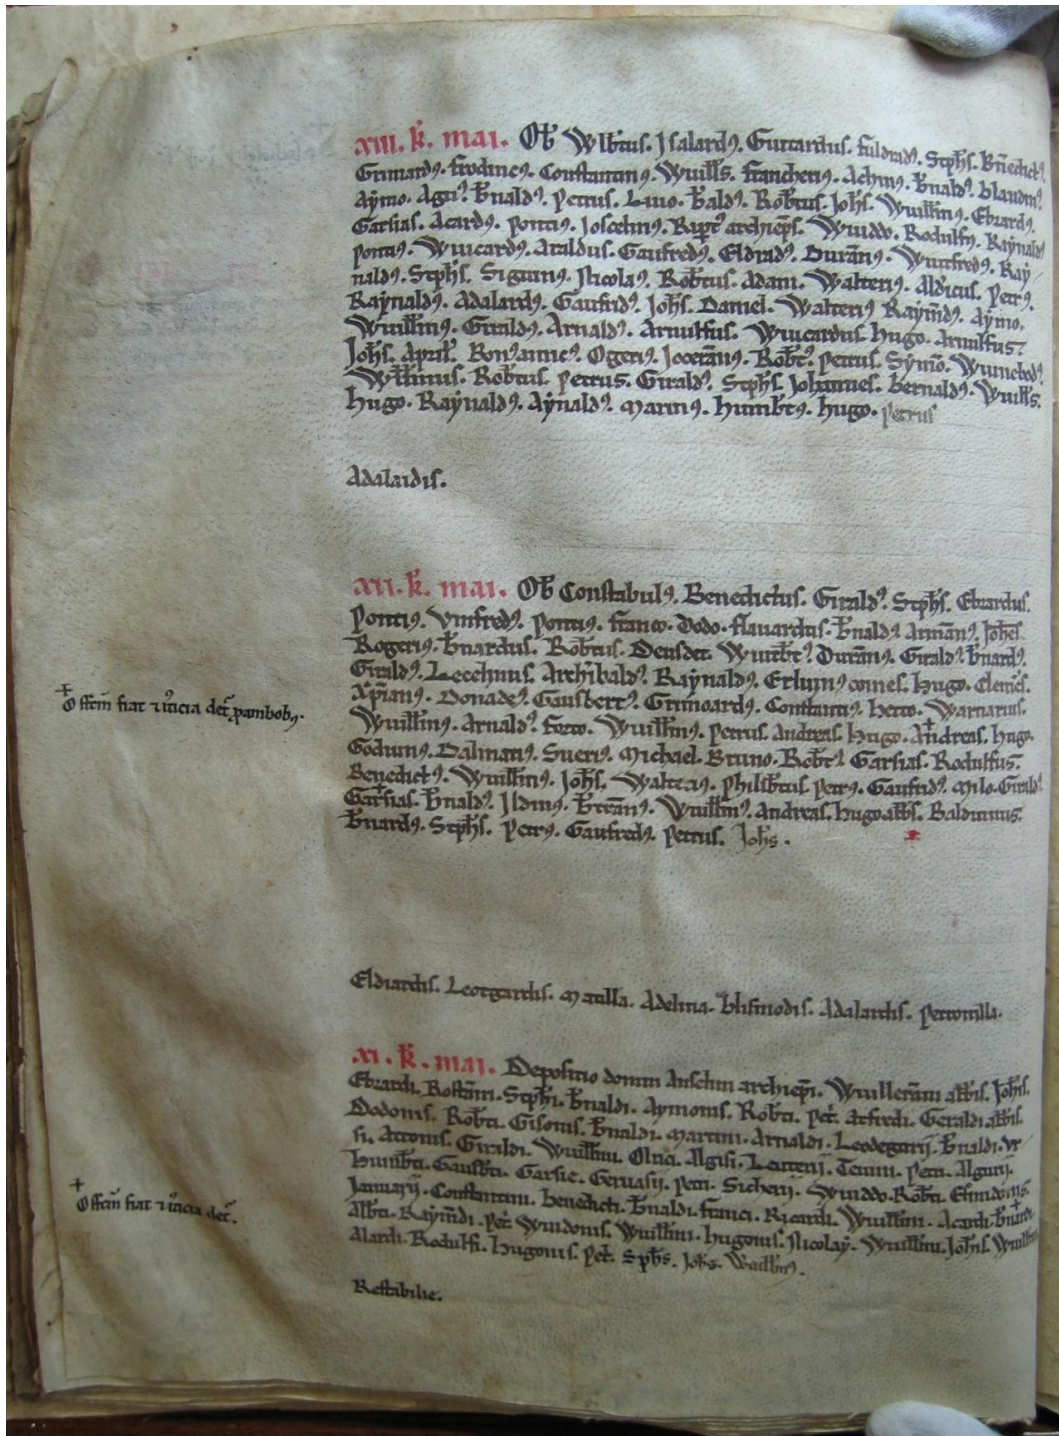 xiii. k̄. mai. Ob̄ Wlb̄tus. Isalardꝰ. Guitardus. fuldradꝰ. Stph̄s. Bn̄edictꝰ.
Grimardꝰ. frodincꝰ. Constantinꝰ. Wuill̄s. francheriꝰ. Achinꝰ. b̄naldꝰ. blandinꝰ.
Aymo. b̄naldꝰ. petrus. Liuo. b̄aldꝰ. Rob̄tus. Joh̄s. Wuill̄inꝰ. Ebrardꝰ.
Garsias. Acardꝰ. pontiꝰ. Joscelinꝰ. archiep̄s. Wuiddo. Rodulfꝰ. Raynaldꝰ
pontiꝰ. Wuicardꝰ. Ataldus. Gaufredꝰ. Eldradꝰ. Durān̄ꝰ. Wuitfredꝰ. Ray
naldꝰ. Stph̄s. Siguinꝰ. Nicolaꝰ. Rob̄tus. Adam. Walteriꝰ. Aldicus. petrꝰ.
Raynaldꝰ. Adalardꝰ. Gaufridꝰ. Joh̄s. Daniel. Walteriꝰ Raym̄dꝰ. Aymo.
Wuill̄inꝰ. Giraldꝰ. Arnaldꝰ. Arnulfus. Wuicardus. hugo. Arnulfus.
Joh̄s. Aprilꝰ. Ogeriꝰ. Jocerān̄ꝰ. Rob̄tꝰ. petrus. Symō. Wunebodꝰ.
Wll̄imus. Rob̄tus. petrus. Giraldꝰ. Stph̄s. Johannes. bernaldꝰ. Wuill̄s.
hugo. Raynaldꝰ. Aynaldꝰ. Martinꝰ. humb̄tꝰ. hugo. petrus
Adalaidis.
xii. k̄. mai. Ob̄ Constabulꝰ. Benedictus. Giraldꝰ. Stph̄s. Ebrardus.
pontiꝰ. Vmfredꝰ. pontiꝰ. franco. Dodo. flauardus. b̄naldꝰ Armān̄ꝰ. Joh̄es.
Rogeriꝰ. b̄nardus. Rob̄tus. Deusdet. Wuitb̄tꝰ. Durān̄ꝰ. Giraldꝰ. b̄nardꝰ.
Giraldꝰ. Lecelinus. Archibaldꝰ. Raynaldꝰ. Erluinꝰ comes. hugo. Clem̄s.
Xp̄ianꝰ. Donadeꝰ. Gausbertꝰ. Grimoardꝰ. Constantiꝰ. hetto. Warnarius.
+ Offm̄ fiat ⁊ iūticia det̄. pambobꝰ.
Wuill̄inꝰ. Arnaldꝰ. forto. Wuill̄inꝰ. petrus. Andreas. hugo. + Andreas. hugo.
Godinꝰ. Dalmatiꝰ. Sueriꝰ. Michael. Bruno. Rob̄tꝰ. Garsias. Rodulfus.
Benedictꝰ. Wuill̄inꝰ. Joh̄s. Walteriꝰ. philib̄tus. petrꝰ. Gaufridꝰ. Milo. Giraldꝰ
Garsias. b̄naldꝰ. Ildinꝰ. b̄trān̄ꝰ. Wuill̄inꝰ. Andreas. hugo abb̄s. Balduinus.
b̄nardꝰ. Stph̄s. petrꝰ. Gaufredꝰ. petrus. Joh̄s.
Eldiardis. Leotgardis. Matilla. Adelina. blismodis. Adalardis. petronilla.
xi. k̄. mai. Depositio domni Anselmi archiep̄i. Wuillerām̄i abb̄is. Joh̄is.
Ebrardi. Rostām̄i. Stph̄i. b̄naldi. Aymonis. Rob̄ti. pet̄. Atfredi. Geraldi abb̄is.
Dodonis. Rob̄ti. Gisonis. b̄naldi. Martini. Arnaldi. Leodegarij. b̄naldi. Vr
si. Attonis. Giraldi. Wuill̄ini. Olrici. Algisi. Leuterij. Tenni. petri. Algurij.
humb̄ti. Gausb̄ti. Garsie. Geruasij. petri. Sicherij. Wuiddo. Rob̄ti. Esmidonis.
+ Offm̄ fiat ⁊ iūticia det̄.
Januarij. Constantini. benedicti. b̄naldi. franci. Ricardi. Wuill̄ini. Acardi. + b̄nardi.
Alb̄ti. Raym̄di. pet̄. Wuidonis. Wuill̄ini. hugonis. Nicolaÿ. Wuill̄ini. Joh̄is. Wuill̄ini
Alardi. Rodulfi. hugonis. pet̄. Sph̄s. Joh̄s. Wuill̄inꝰ.
Restabilie.